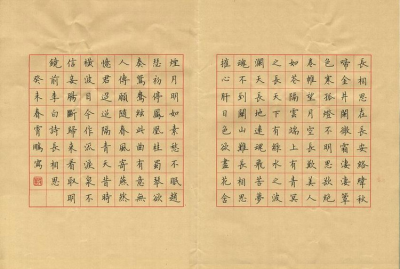 長相思在長安絡緯秋
啼金井闌微霜淒淒簟
色寒孤燈不明思欲絕
卷帷望月空長歎美人
如花隔雲端上有青冥
之長天下有綠水之波
瀾天長地遠魂飛苦夢
魂不到關山難長相思
摧心肝日色欲盡花含
煙月明如素愁不眠趙
瑟初停鳳凰柱蜀琴欲
奏鴛鴦絃此曲有意無
人傳願隨春風寄燕然
憶君迢迢隔青天昔時
橫波目今作流淚泉不
信妾腸斷歸來看取明
鏡前李白詩長相思
癸未春宵鵬寫